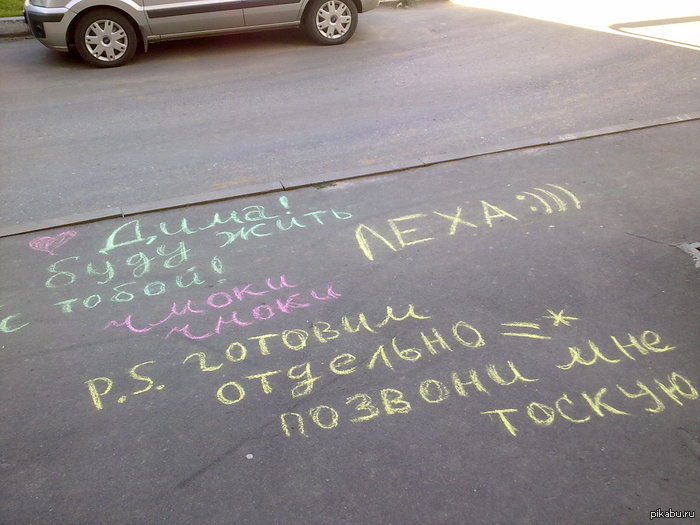 Дима!
буду жить
с тобой!
чмоки
чмоки
ЛЕХА :))))
P.S. готовим
отдельно =*
позвони мне
тоскую
pikabu.ru